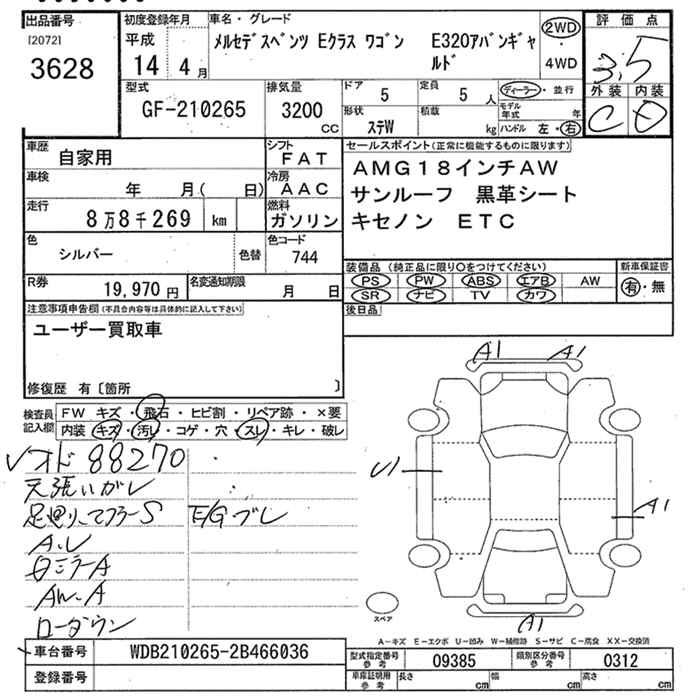 出品番号
[2072]
3628
初度登録年月
平成
14 4 月
車名・グレード
メルセデスベンツ Eクラス ワゴン E320アバンギャルド
2WD
・
4WD
評価点
3.5
外装 内装
C D
型式
GF-210265
排気量
3200
CC
ドア
5
定員
5 人
形状
ステW
積載
kg
ディーラー・並行
モデル年式 年
ハンドル 左・右
車歴
自家用
シフト
FAT
車検
年 月( 日)
冷房
AAC
走行
8万8千269 km
燃料
ガソリン
色
シルバー
色替
色コード
744
R券
19,970 円
名変通知期限
月 日
セールスポイント(正常に機能するものに限ります)
AMG18インチAW
サンルーフ 黒革シート
キセノン ETC
装備品 (純正品に限り○をつけてください)
PS PW ABS エアB AW
SR ナビ TV カワ
新車保証書
有・無
後日品
注意事項申告欄(不具合内容等は具体的に記入して下さい)
ユーザー買取車
修復歴 有〔箇所 〕
検査員記入欄
FW キズ・飛石・ヒビ割・リペア跡・×要
内装 キズ・汚レ・コゲ・穴・スレ・キレ・破レ
✓オド 88270
天張いがレ
足廻り、マフラーS E/Gブレ
A.U
Aw.A
ローダウン
A1 A1
U1
A1
A1
スペア
A-キズ E-エクボ U-凹み W-補修跡 S-サビ C-腐食 XX-交換済
車台番号
WDB210265-2B466036
登録番号
型式指定番号
参考
09385
類別区分番号
参考
0312
車庫証明用
参考
長さ cm
幅 cm
高さ cm